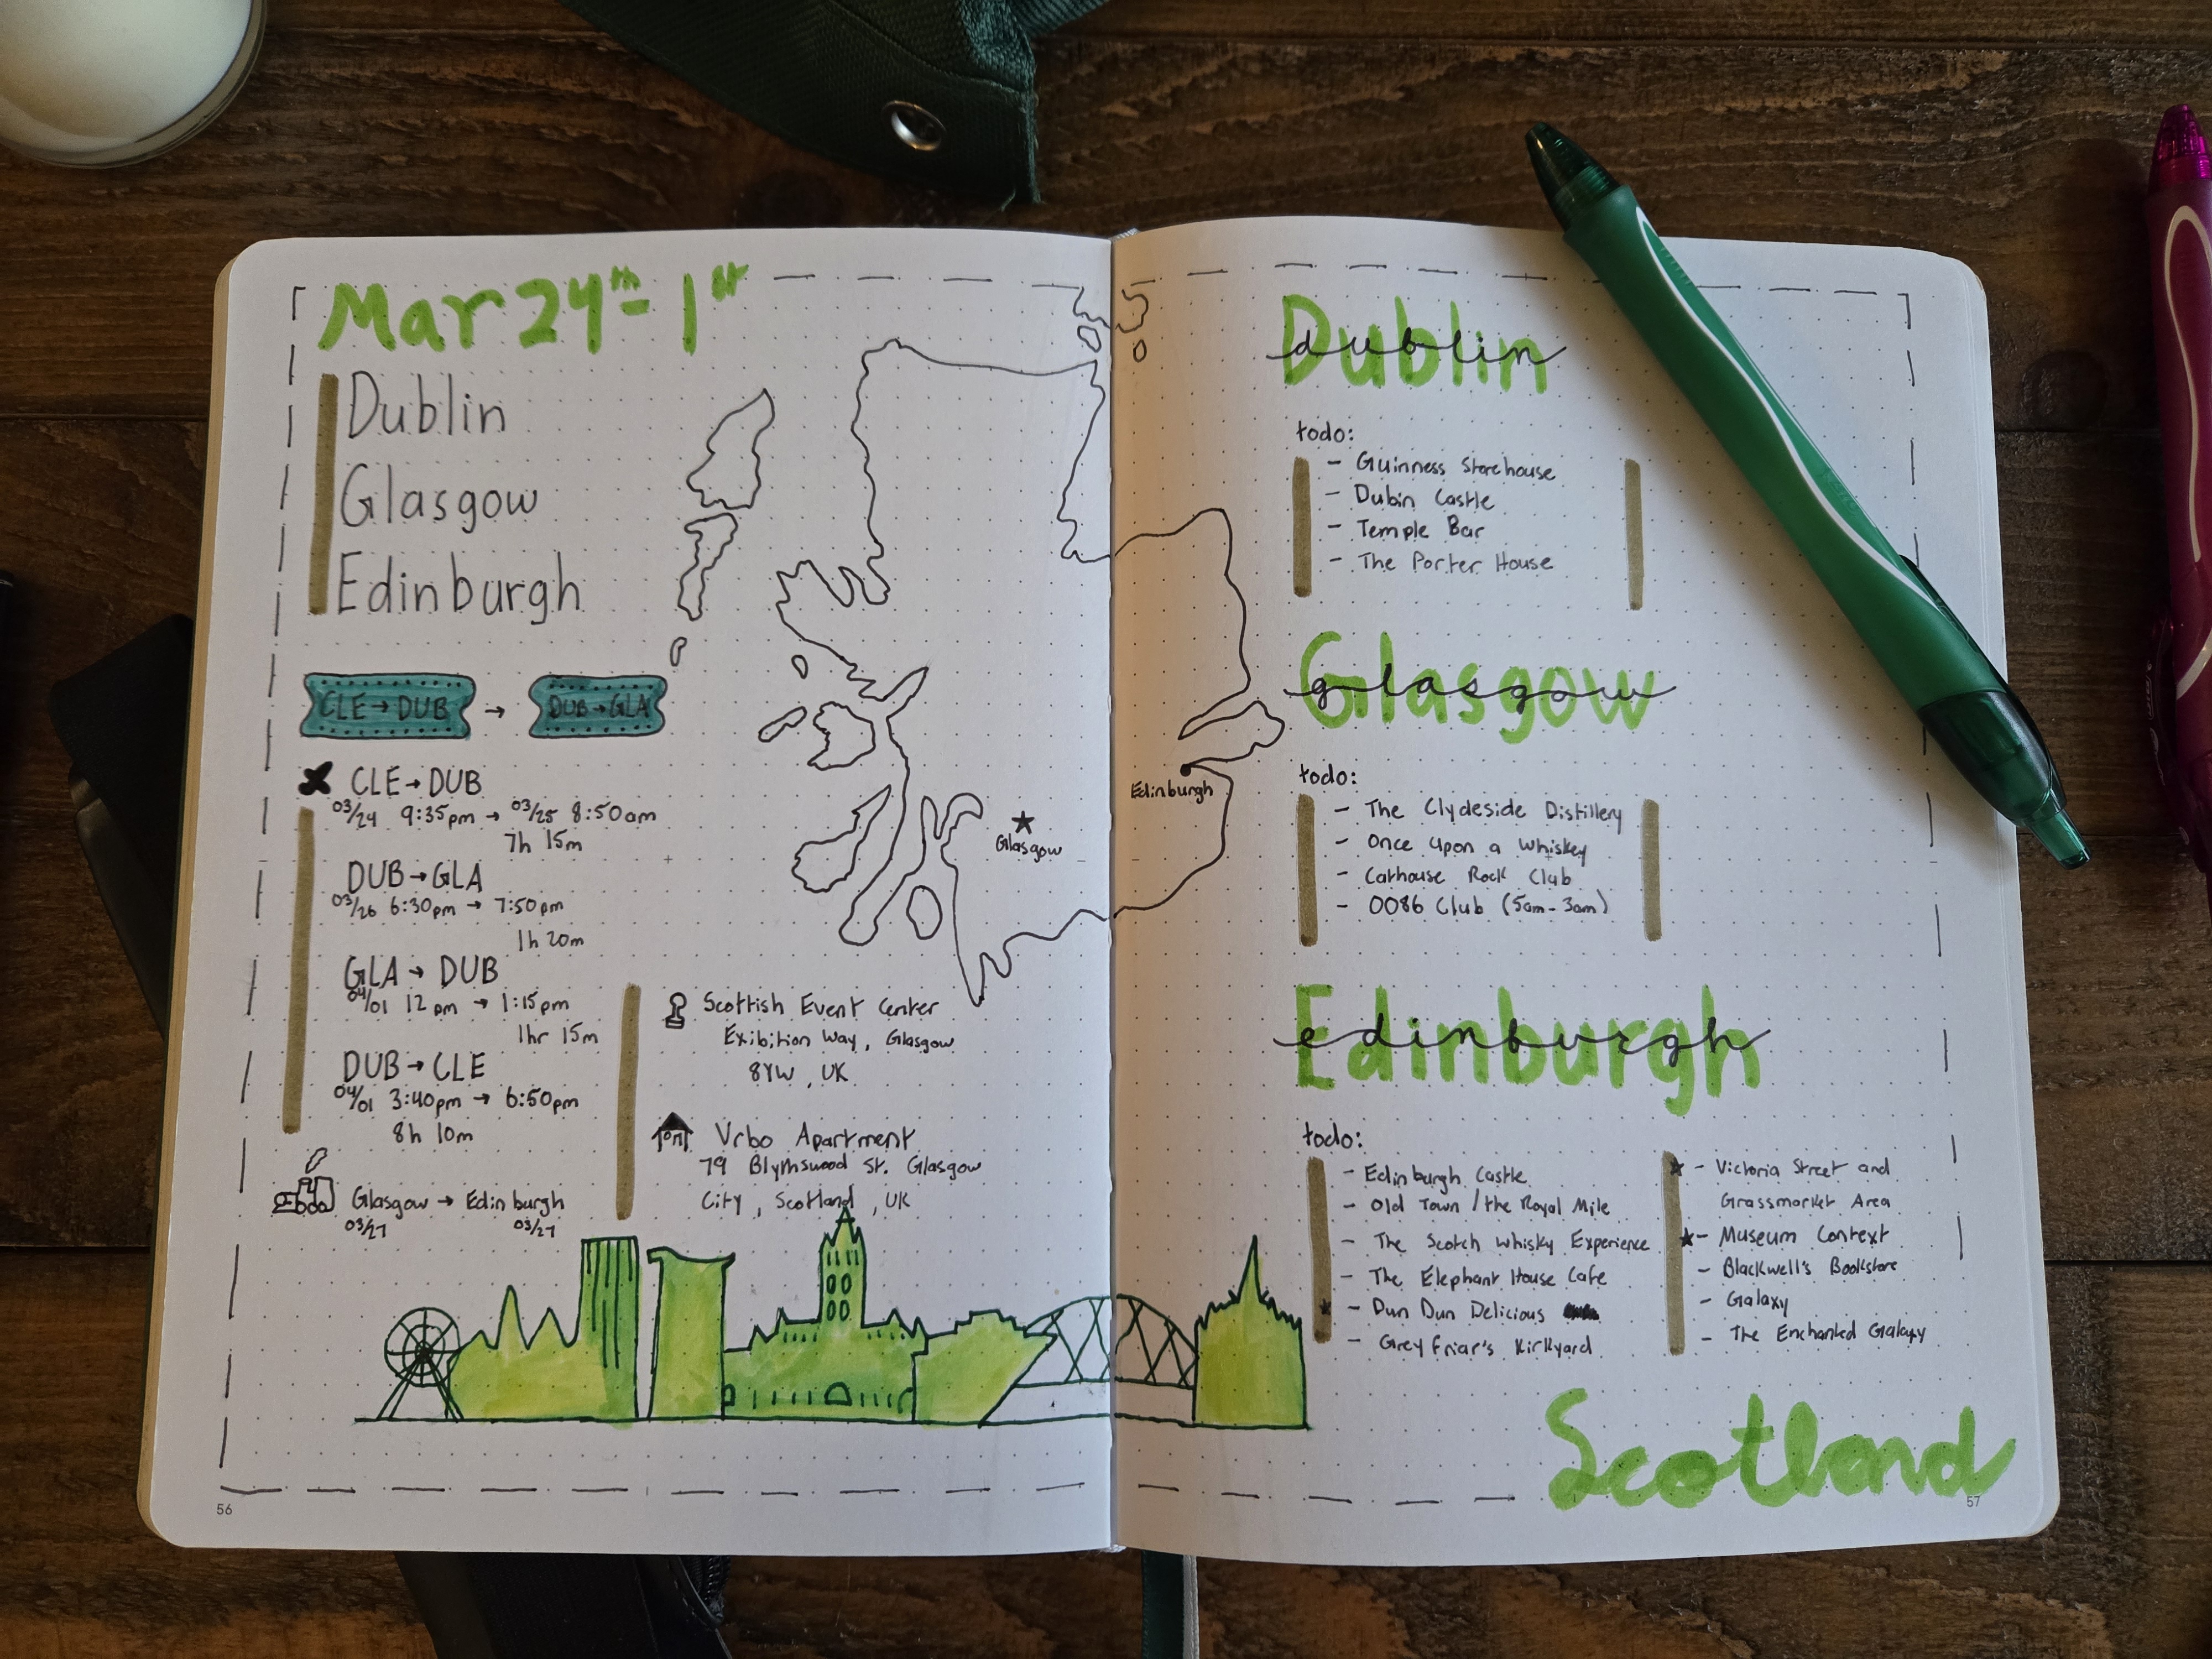 Mar 24th - 1st
Dublin
Glasgow
Edinburgh
CLE → DUB → DUB → GLA
CLE → DUB
03/24 9:35pm → 03/25 8:50am
7h 15m
DUB → GLA
03/26 6:30pm → 7:50pm
1h 20m
GLA → DUB
04/01 12 pm → 1:15pm
1hr 15m
DUB → CLE
04/01 3:40pm → 6:50pm
8h 10m
Glasgow → Edinburgh
03/27 03/27
Scottish Event Center
Exibition Way, Glasgow
8YW, UK
Vrbo Apartment
79 Blythswood St. Glasgow
City, Scotland, UK
Glasgow
56
Edinburgh
Dublin
dublin
todo:
- Guinness Storehouse
- Dubin Castle
- Temple Bar
- The Porter House
Glasgow
glasgow
todo:
- The Clydeside Distillery
- Once Upon a Whiskey
- Cathouse Rock Club
- 0086 Club (5am - 3am)
Edinburgh
edinburgh
todo:
- Edinburgh Castle
- Old Town / the Royal Mile
- The Scotch Whisky Experience
- The Elephant House Cafe
★ - Dun Dun Delicious
- Grey Friar's Kirkyard
★ - Victoria Street and
Grassmarket Area
★ - Museum Context
- Blackwell's Bookstore
- Galaxy
- The Enchanted Galaxy
Scotland
57